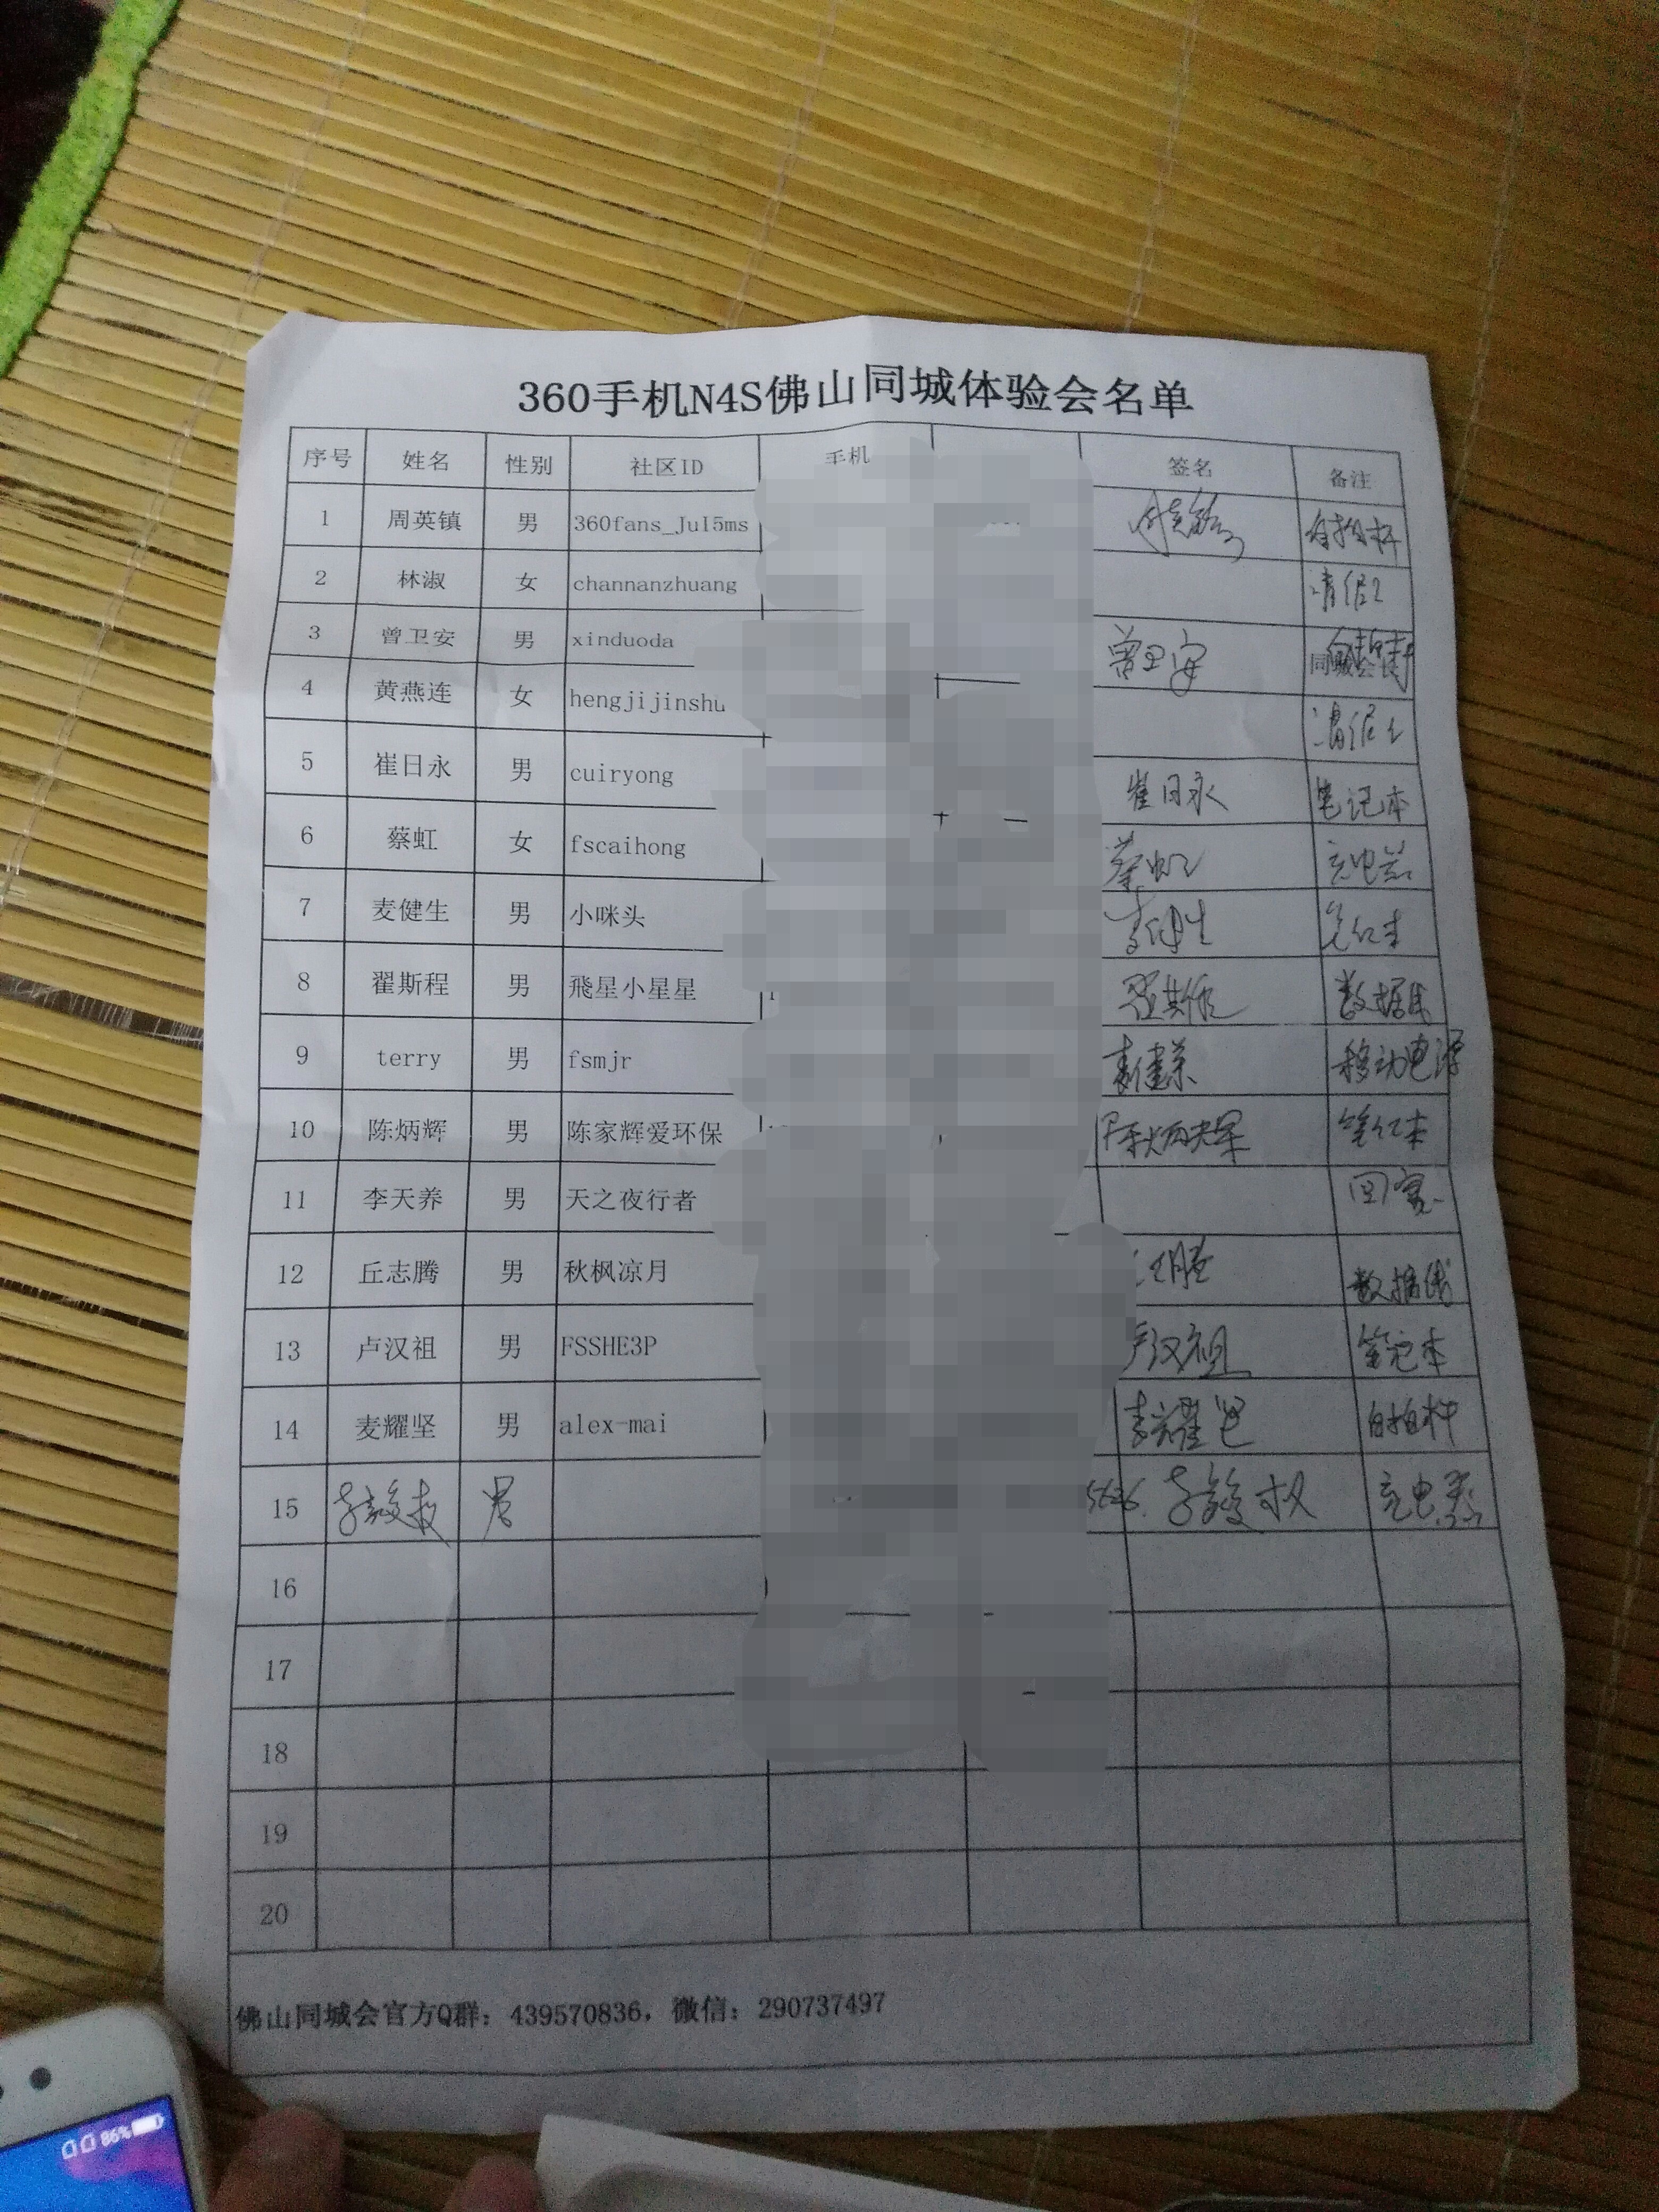 360手机N4S佛山同城体验会名单
序号 姓名 性别 社区ID 手机 签名 备注
1 周英镇 男 360fans_JuI5ms 自拍杆
2 林淑 女 channanzhuang 请假
3 曾卫安 男 xinduoda 曾卫安
4 黄燕连 女 hengjijinshu 请假
5 崔日永 男 cuiryong 崔日永 笔记本
6 蔡虹 女 fscaihong 蔡虹 充电器
7 麦健生 男 小咪头 麦健生 笔记本
8 翟斯程 男 飛星小星星 数据线
9 terry 男 fsmjr 移动电源
10 陈炳辉 男 陈家辉爱环保 陈炳辉 笔记本
11 李天养 男 天之夜行者
12 丘志腾 男 秋枫凉月 数据线
13 卢汉祖 男 FSSHE3P 卢汉祖 笔记本
14 麦耀坚 男 alex-mai 麦耀坚 自拍杆
15 男 充电器
16
17
18
19
20
佛山同城会官方Q群：439570836，微信：290737497
86%